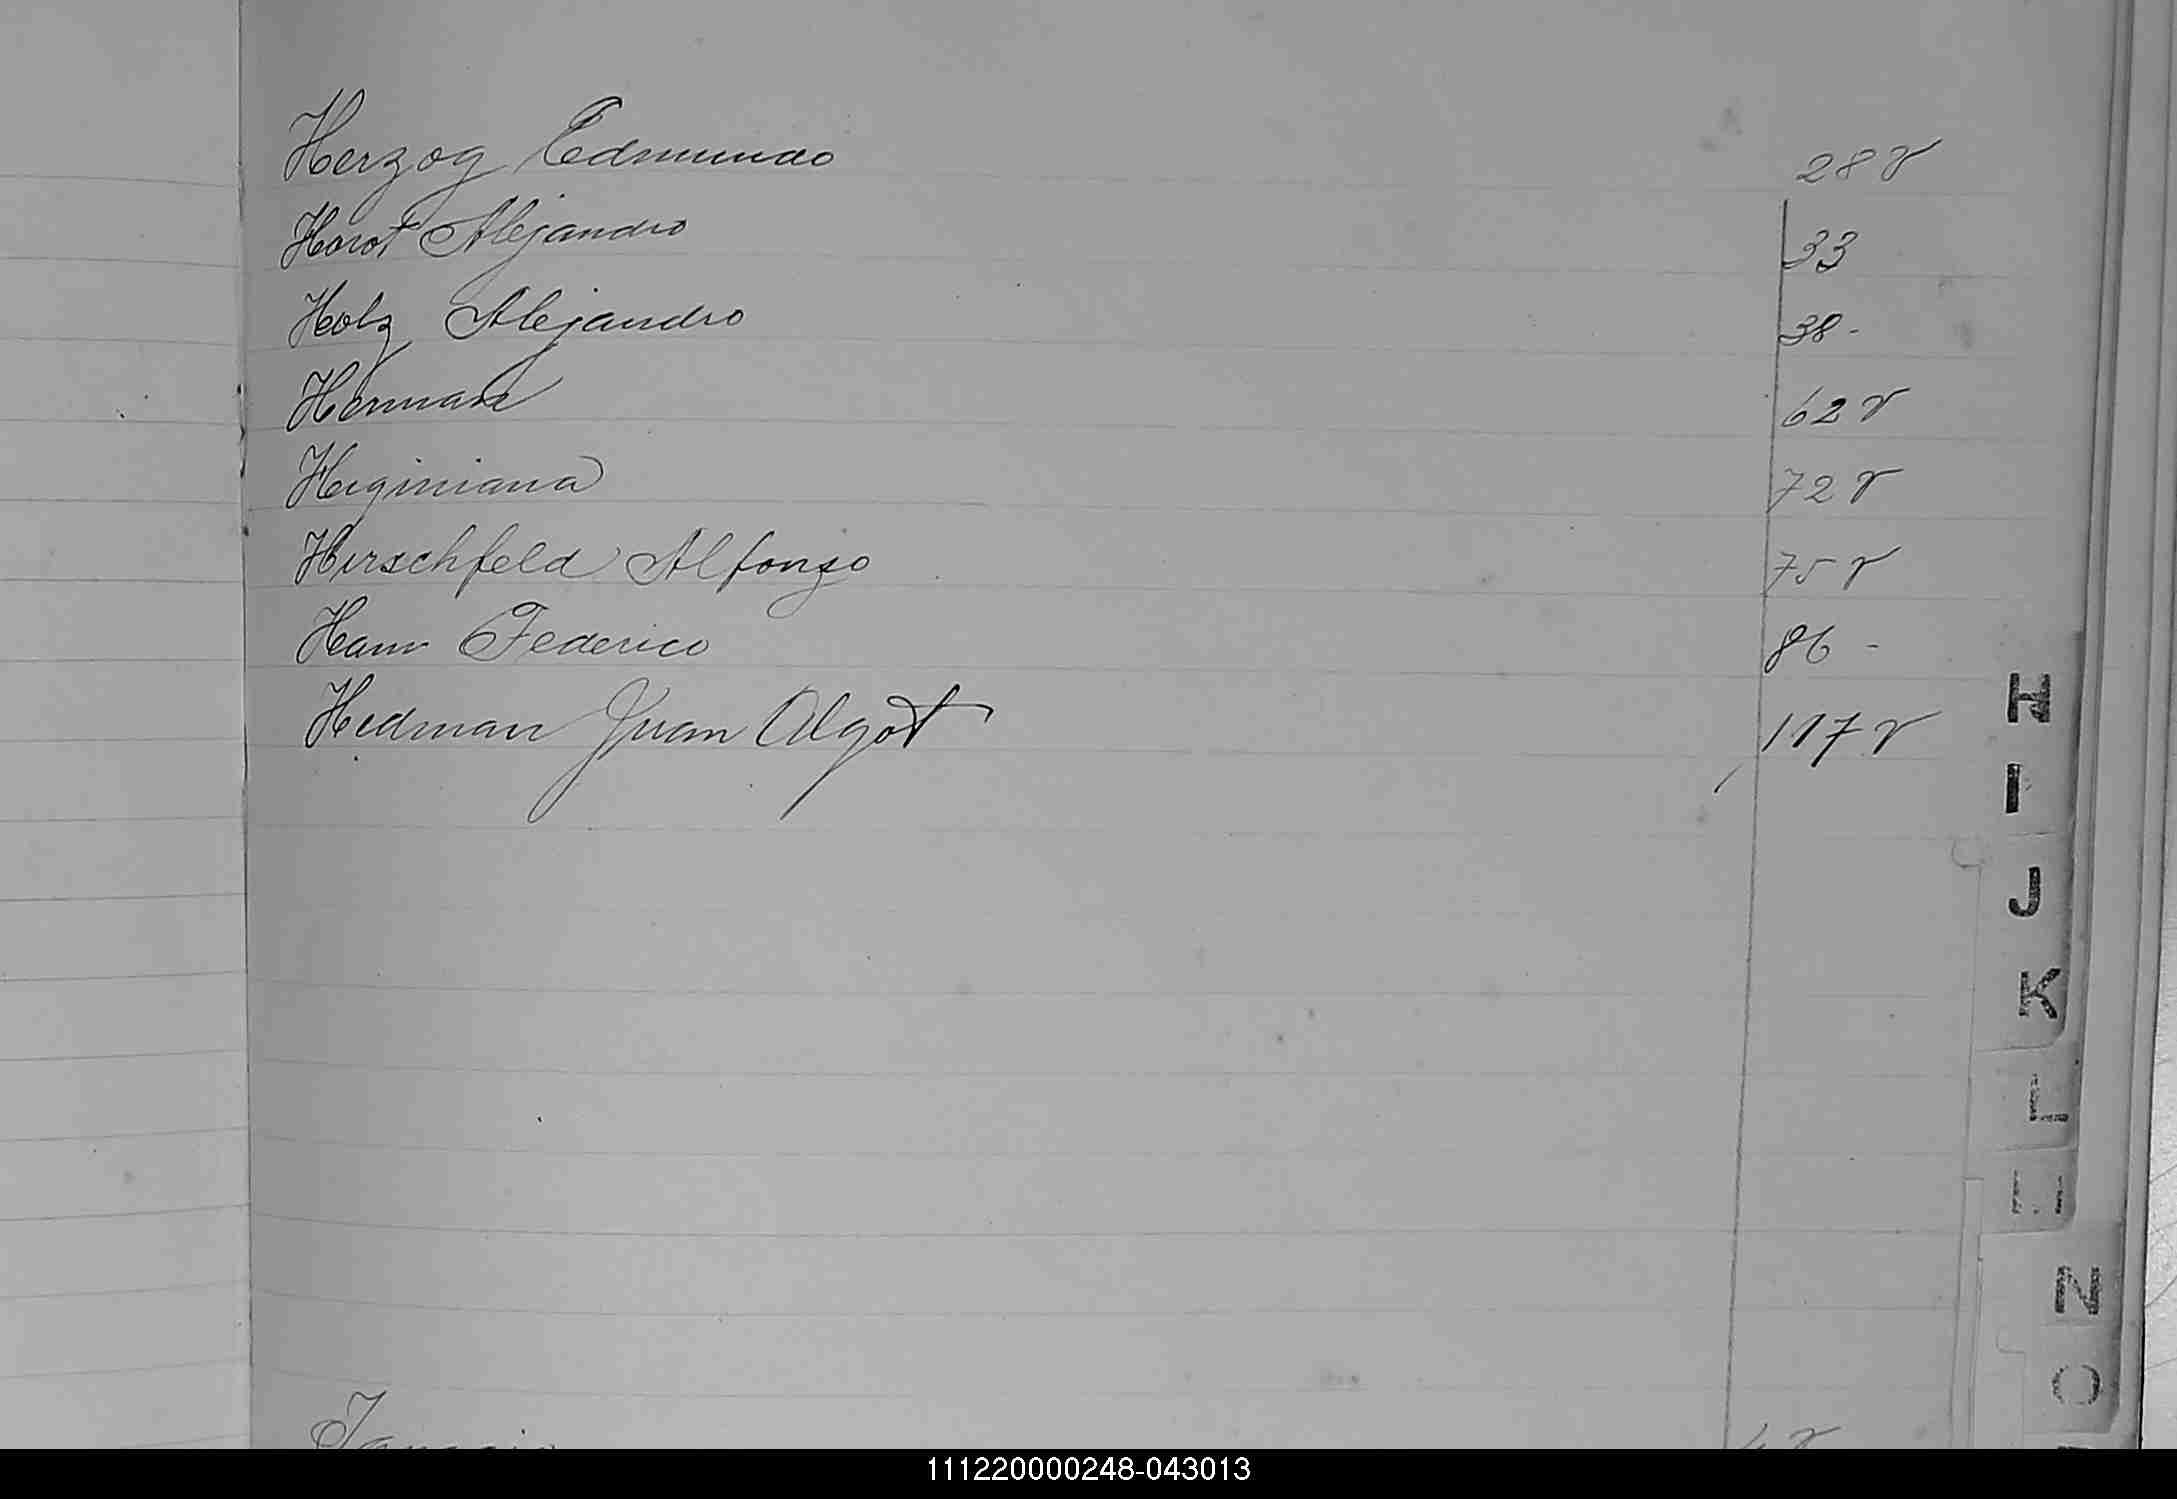 Herzog Edmundo 28 v
Horst Alejandro 33
Holz Alejandro 38 -
Herman 62 v
Higiniana 72 v
Hirschfeld Alfonzo 75 v
Hann Federico 86 -
Hedman Juan Algot 117 v
H
I
J
K
L
N
O
111220000248-043013